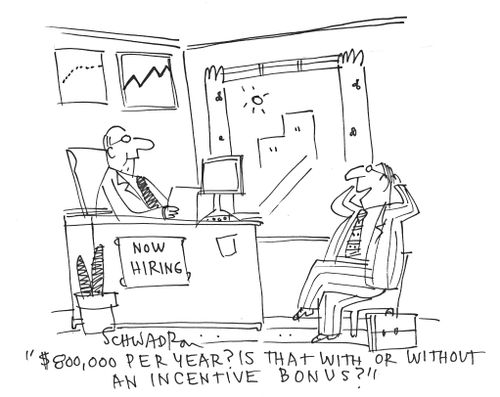 NOW
HIRING
SCHWADRON
"$800,000 PER YEAR? IS THAT WITH OR WITHOUT
AN INCENTIVE BONUS?"